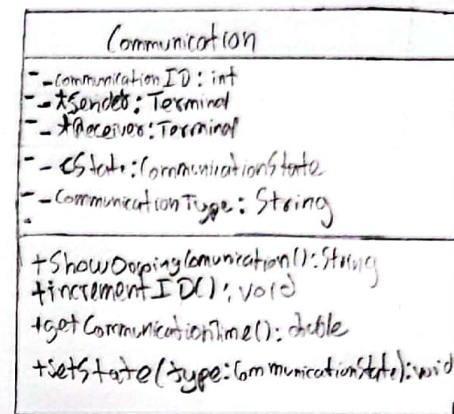 Communication
- -communicationID: int
- -*Sender: Terminal
- -*Receiver: Terminal
- -cState: CommunicationState
- -CommunicationType: String
-
+ShowOngoingComunication(): String
+incrementID(): void
+getCommunicationTime(): double
+setState(type: CommunicationState): void